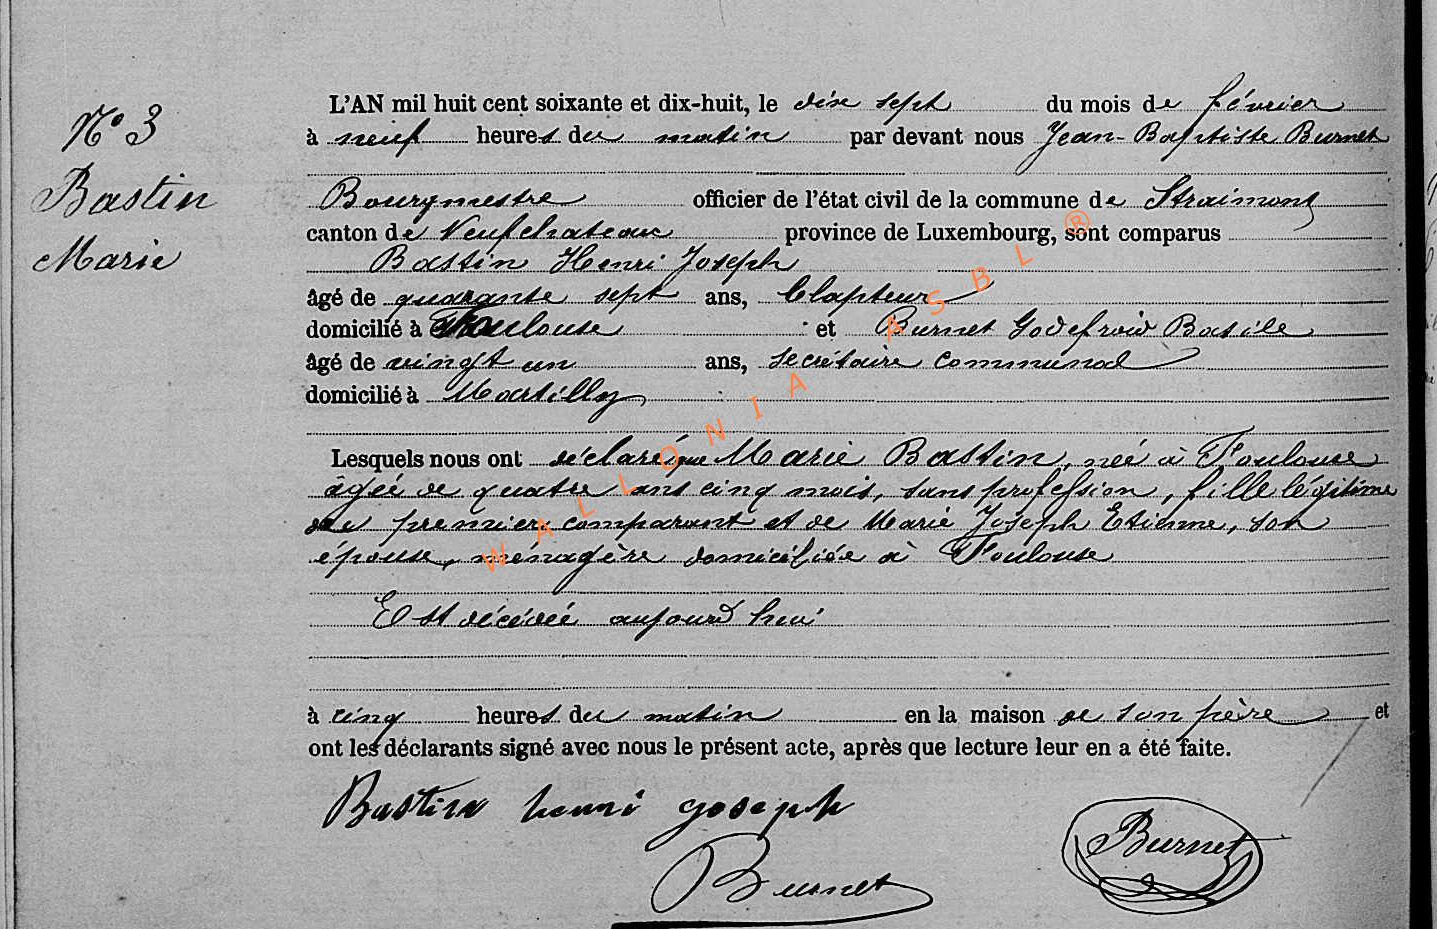 N° 3
Bastin
Marie
L'AN mil huit cent soixante et dix-huit, le dix sept du mois de février
à neuf heures du matin par devant nous Jean-Baptiste Burnet
Bourgmestre officier de l'état civil de la commune de Straimont
canton de Neufchateau province de Luxembourg, sont comparus
Bastin Henri Joseph
âgé de quarante sept ans, Clapteur
domicilié à Toulouse et Burnet Godefroid Basile
âgé de vingt un ans, secrétaire communal
domicilié à Martilly
Lesquels nous ont déclaré que Marie Bastin, née à Foulouse
âgée de quatre ans cinq mois, sans profession, fille légitime
du premier comparant et de Marie Joseph Etienne, son
épouse, ménagère domiciliée à Foulouse
Est décédée aujourd'hui
à cinq heures du matin en la maison de son père et
ont les déclarants signé avec nous le présent acte, après que lecture leur en a été faite.
Bastin henri joseph
Burnet
Burnet
WALLONIA ASBL ®